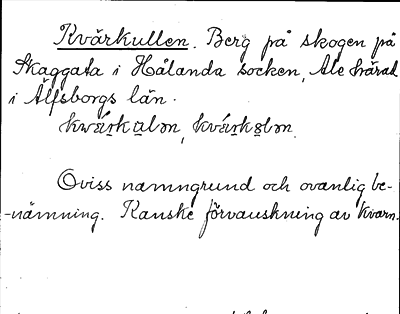 Kvärkullen. Berg på skogen på
Skaggata i Hålanda socken, Ale härad
i Älfsborgs län.
Oviss namngrund och ovanlig be-
-nämning. Kanske förvanskning av Kvarn.